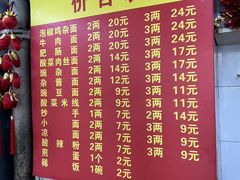 价目表
泡椒鸡杂面 2两 20元 3两 24元
牛肉面 2两 20元 3两 24元
肥肠面 2两 20元 3两 24元
酸菜肉丝面 2两 14元 3两 17元
杂酱面 2两 12元 3两 14元
豌豆面 2两 9元 3两 14元
酸菜米线 2两 9元 3两 14元
抄手 2两 9元 3两 14元
小面 2两 7元 3两 9元
凉面 2两 7元 3两 9元
酸辣粉 2两 7元 3两 9元
煎蛋 1个 2元
稀饭 1碗 2元